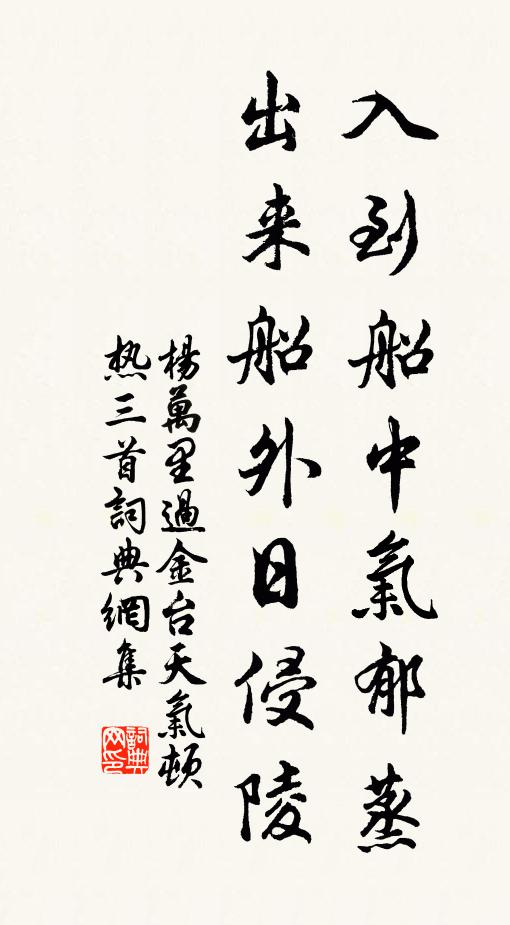 入到船中氣郁蒸
出来船外日侵陵
楊萬里過金台天氣頓
热三首詞典網集
詞典网印